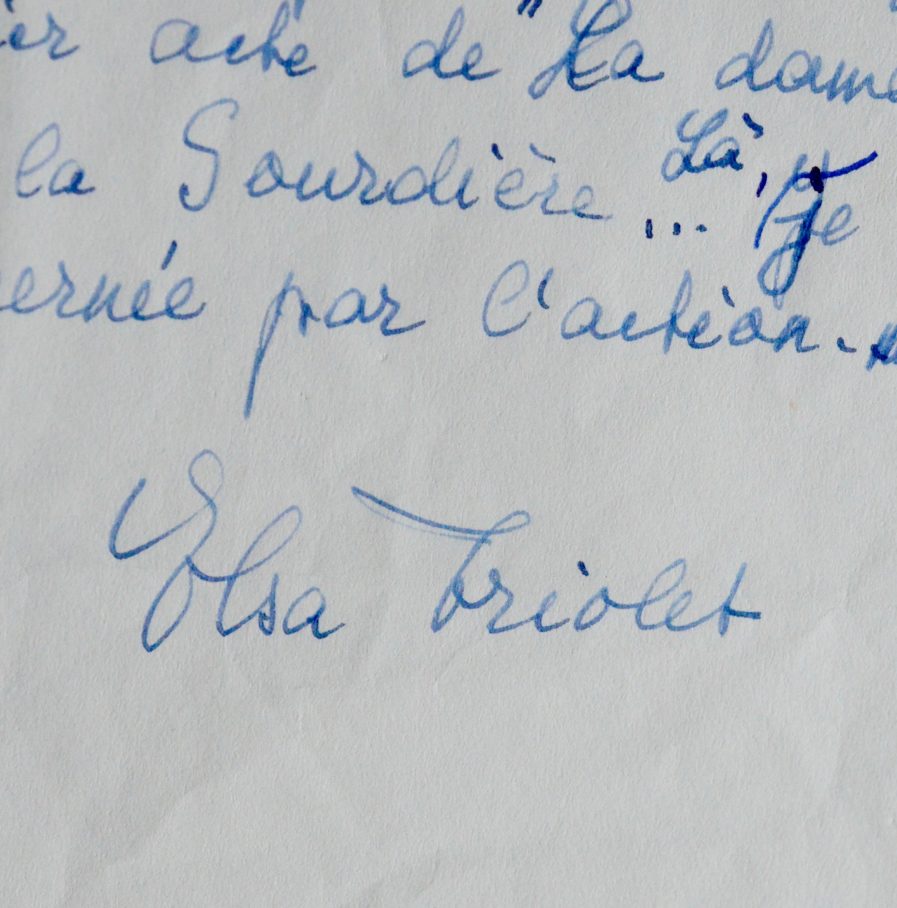 ier acte de "La dame
la Sourdière... Là, je
ernée par l'action.
Elsa Triolet